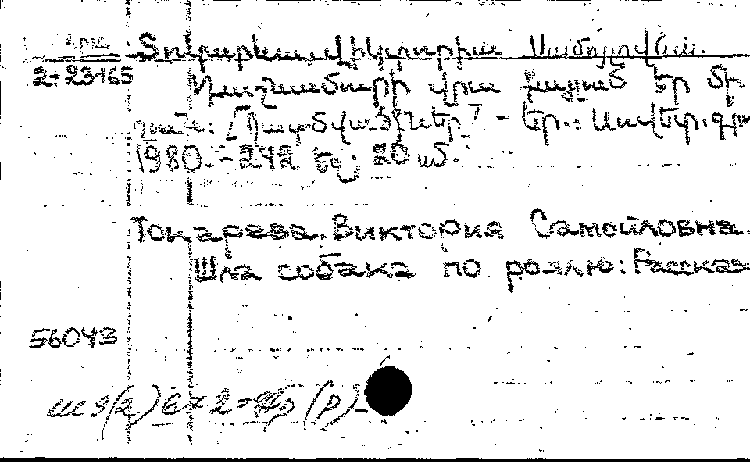 Տոկարևա, Վիկտորիա Սամոյլովնա.
2-23165
Դաշնամուրի վրա քայլած էր մի
շուն: [Պատմվածքներ] - Եր.: Սովետ. գր
1980. - 272 էջ; 20 սմ.
Токарева, Виктория Самойловна.
Шла собака по роялю: Рассказ
56043